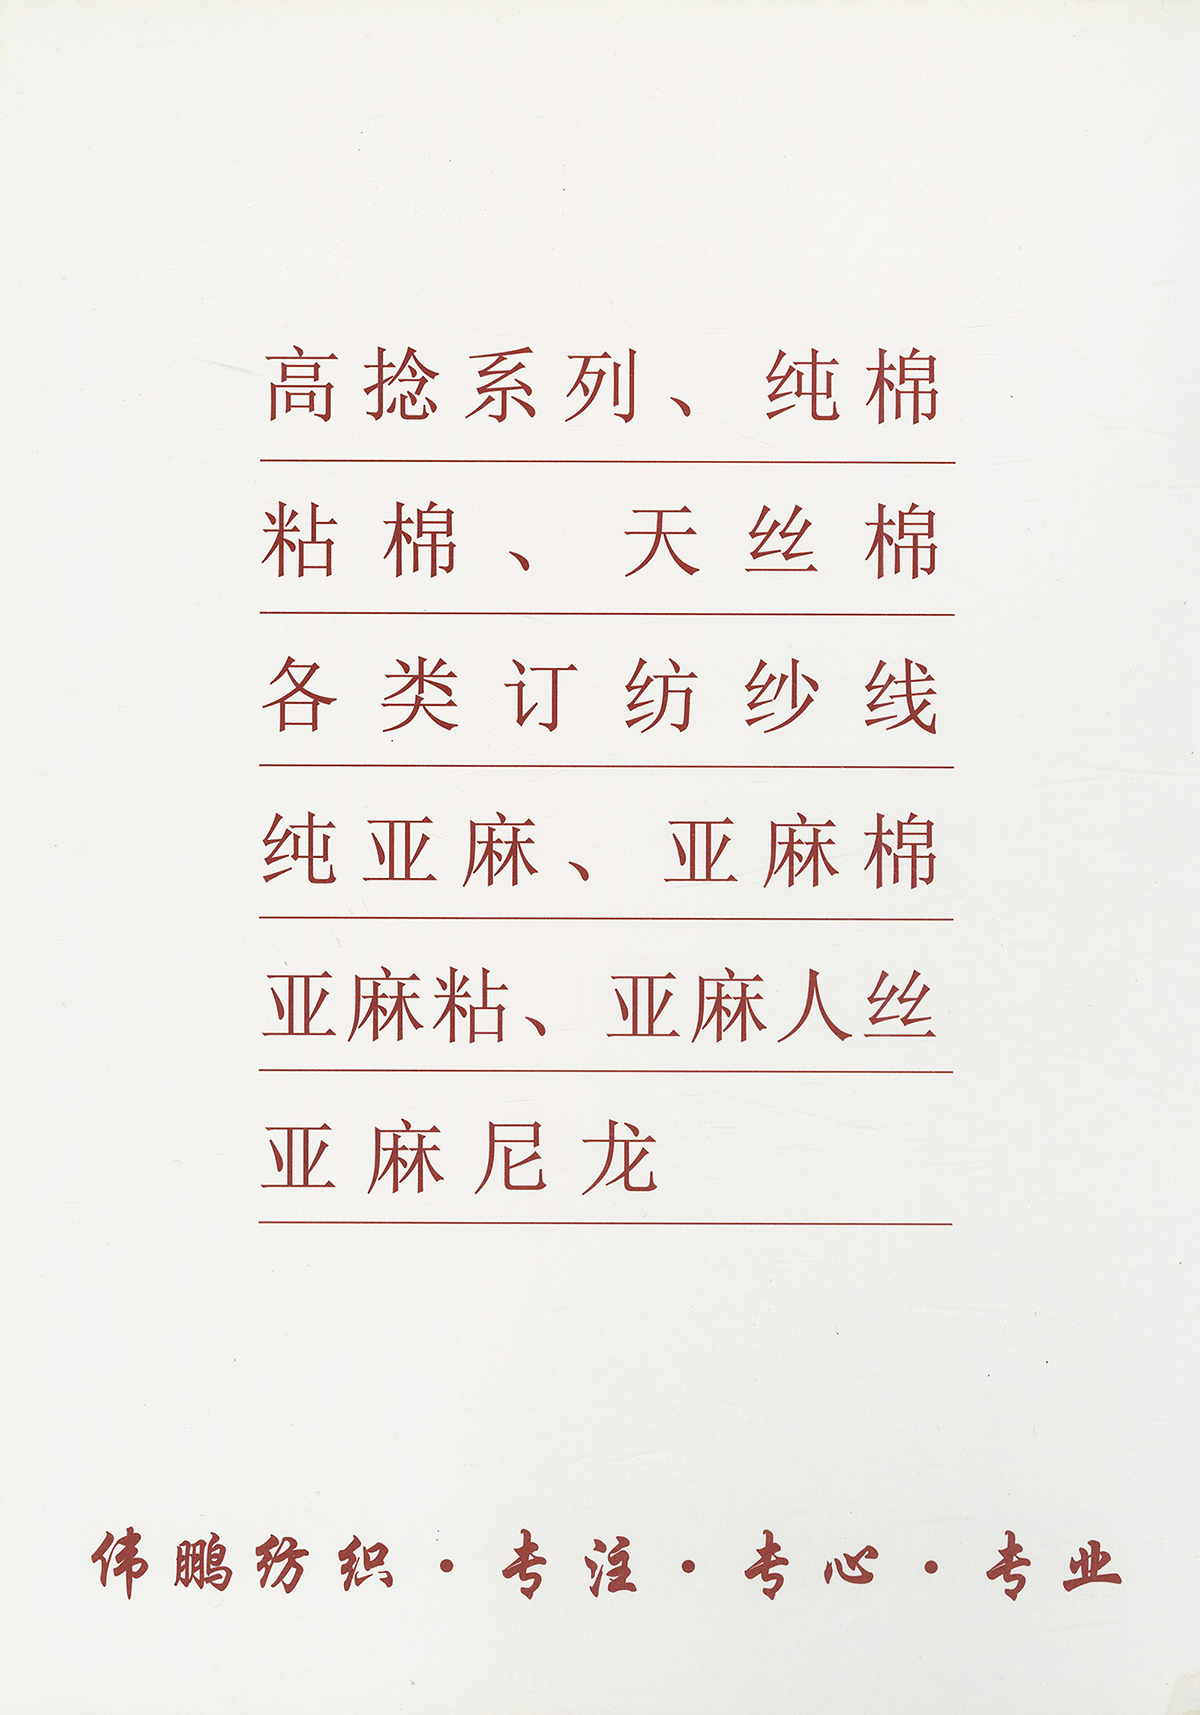 高捻系列、纯棉
粘棉、天丝棉
各类订纺纱线
纯亚麻、亚麻棉
亚麻粘、亚麻人丝
亚麻尼龙
伟鹏纺织·专注·专心·专业